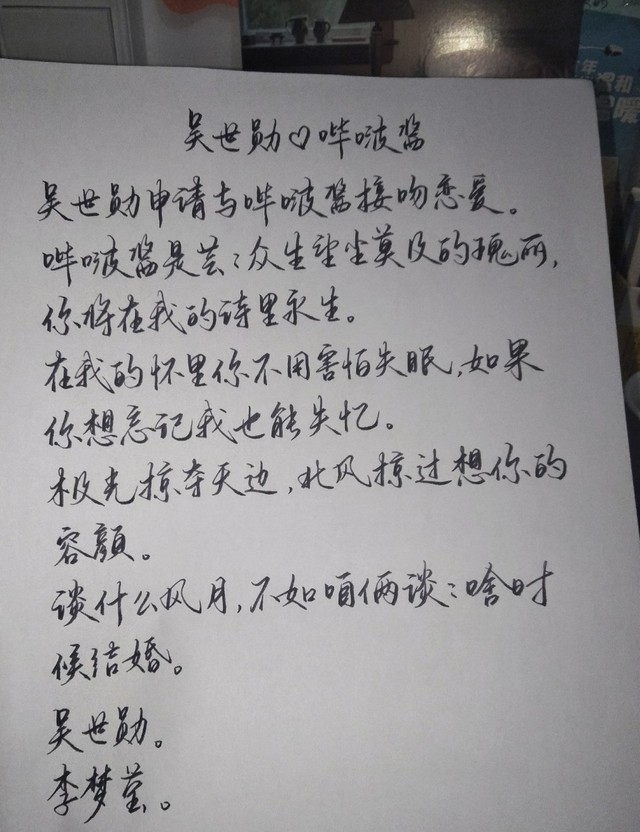 吴世勋♡哔啵酱
吴世勋申请与哔啵酱接吻恋爱。
哔啵酱是芸〻众生望尘莫及的瑰丽,
你将在我的诗里永生。
在我的怀里你不用害怕失眠,如果
你想忘记我也能失忆。
极光掠夺天边,北风掠过想你的
容颜。
谈什么风月,不如咱俩谈〻啥时
候结婚。
吴世勋。
李梦莹。
年
温和